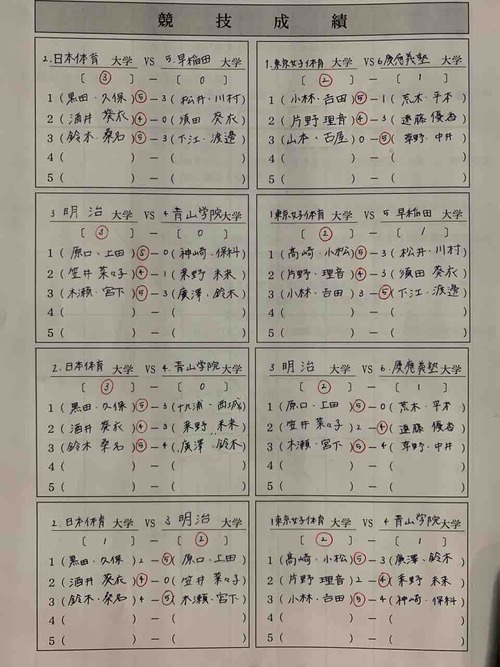 競技成績
2.日本体育 大学 VS 5.早稲田 大学
[ ③ ] － [ 0 ]
1 (黒田・久保) ⑤－3 (松井・川村)
2 (酒井 葵衣) ④－0 (須田 葵衣)
3 (鈴木・桑名) ⑤－3 (下江・渡邉)
4 ( ) － ( )
5 ( ) － ( )
1.東京女子体育 大学 VS 6.慶應義塾 大学
[ ② ] － [ 1 ]
1 (小林・吉田) ⑤－1 (荒木・平本)
2 (片野 理音) ④－3 (遠藤 優)
3 (山本・古屋) 0－⑤ (草野・中井)
4 ( ) － ( )
5 ( ) － ( )
3 明治 大学 VS 4 青山学院 大学
[ ③ ] － [ 0 ]
1 (原口・上田) ⑤－0 (神崎・保科)
2 (笠井 菜々子) ④－1 (栗野 未来)
3 (木瀬・宮下) ⑤－3 (廣澤・鈴木)
4 ( ) － ( )
5 ( ) － ( )
1 東京女子体育 大学 VS 5 早稲田 大学
[ ② ] － [ 1 ]
1 (高崎・小松) ⑤－3 (松井・川村)
2 (片野・理音) ④－3 (須田 葵衣)
3 (小林・吉田) 3－⑤ (下江・渡邉)
4 ( ) － ( )
5 ( ) － ( )
2.日本体育 大学 VS 4.青山学院 大学
[ ③ ] － [ 0 ]
1 (黒田・久保) ⑤－3 (浦・西城)
2 (酒井 葵衣) ④－3 (栗野 未来)
3 (鈴木 桑名) ⑤－4 (廣澤・鈴木)
4 ( ) － ( )
5 ( ) － ( )
3 明治 大学 VS 6.慶應義塾 大学
[ ② ] － [ 1 ]
1 (原口・上田) ⑤－0 (荒木・平本)
2 (笠井 菜々子) 2－④ (遠藤 優)
3 (木瀬・宮下) ⑤－4 (草野・中井)
4 ( ) － ( )
5 ( ) － ( )
2.日本体育 大学 VS 3 明治 大学
[ 1 ] － [ ② ]
1 (黒田・久保) 2－⑤ (原口・上田)
2 (酒井 葵衣) ④－0 (笠井 菜々子)
3 (鈴木・桑名) 4－⑤ (木瀬・宮下)
4 ( ) － ( )
5 ( ) － ( )
1 東京女子体育 大学 VS 4 青山学院 大学
[ ② ] － [ 1 ]
1 (高崎・小松) ⑤－3 (廣澤・鈴木)
2 (片野 理音) 2－④ (栗野 未来)
3 (小林・吉田) ⑤－4 (神崎・保科)
4 ( ) － ( )
5 ( ) － ( )